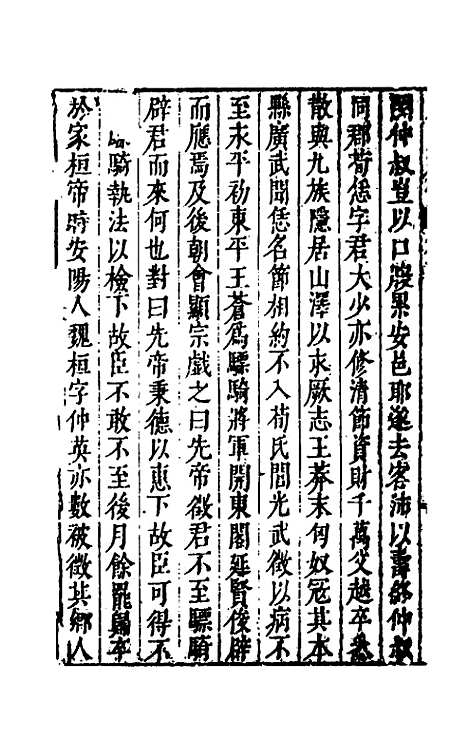 閔仲叔豈以口腹累安邑耶遂去客沛以壽終仲叔
同郡荀恁字君大少亦修清節資財千萬父越卒悉
散與九族隱居山澤以求厥志王莽末匈奴冠其本
縣廣武聞恁名節相約不入荀氏閭光武徵以病不
至永平初東平王蒼爲驃騎將軍開東閤延賢俊辟
而應焉及後朝會顯宗戲之曰先帝徵君不至驃騎
辟君而來何也對曰先帝秉德以惠下故臣可得不
騎執法以檢下故臣不敢不至後月餘罷歸卒
於家桓帝時安陽人魏桓字仲英亦數被徵其鄉人